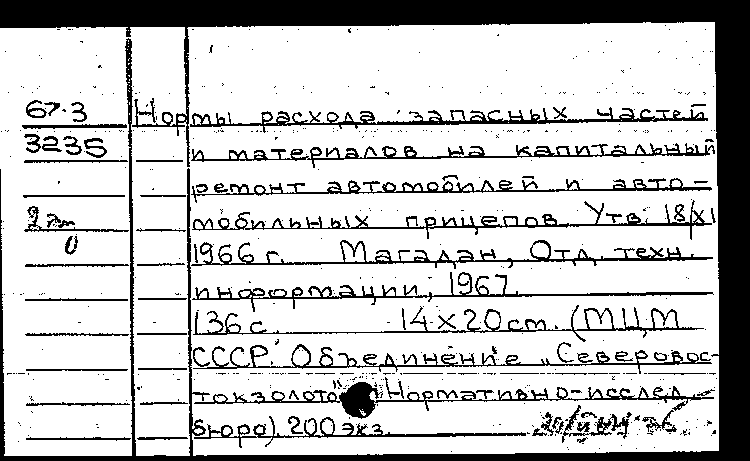 67.3 Нормы расхода запасных частей
3235 и материалов на капитальный
ремонт автомобилей и авто-
мобильных прицепов Утв. 18/XI
0 1966 г. Магадан, Отд. техн.
информации, 1967.
136 с. 14x20 cm. (МЦМ
СССР. Объединение „Северовос-
токзолото" Нормативно-исслед.
бюро). 200 экз.